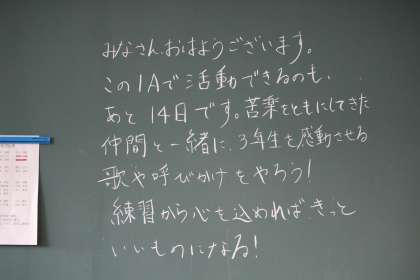 みなさん、おはようございます。
この1Aで活動できるのも、
あと14日です。苦楽をともにしてきた
仲間と一緒に、3年生を感動させる
歌や呼びかけをやろう!
練習から心を込めればきっと
いいものになる!